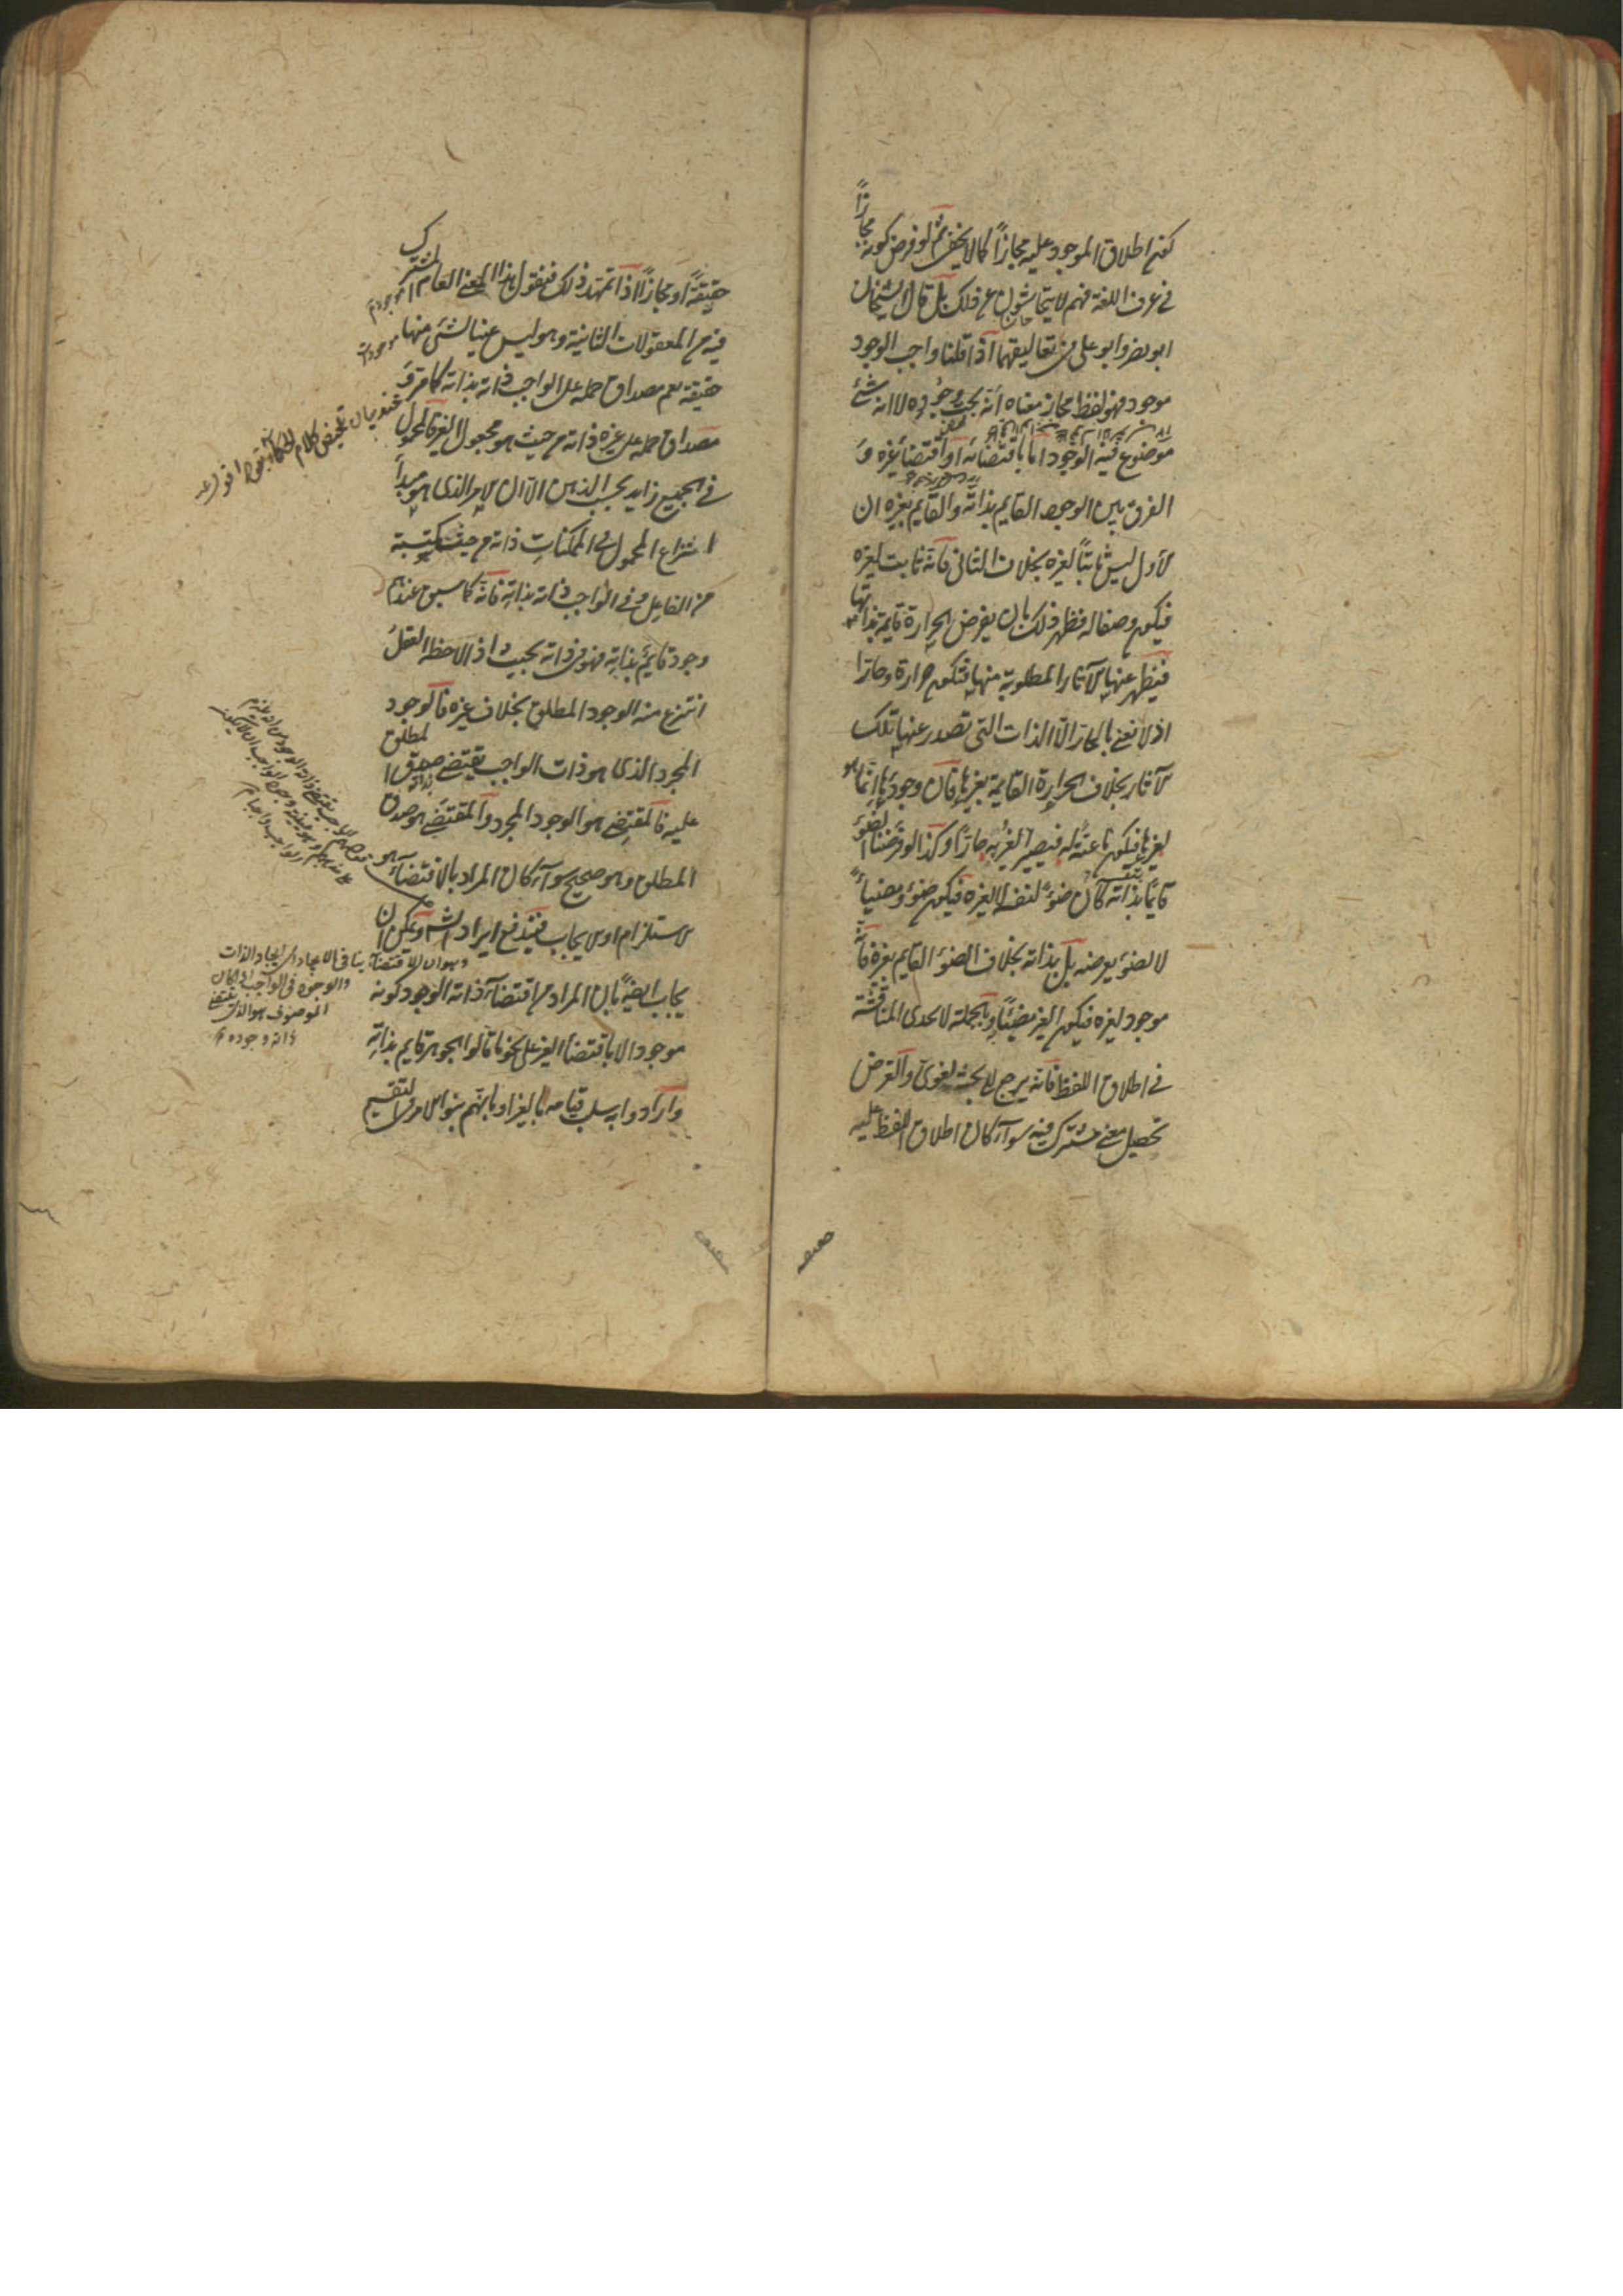 كون اطلاق الموجود عليه مجازاً كما لا يخفى ثم لو فرض كونه مجازاً
في عرف اللغة فهم لا يتحاشون عن ذلك بل قال الشيخان
ابو نصر وابو على في تعاليقهما اذا قلنا واجب الوجود
موجود فهو لفظ مجاز معناه أنه يجب وجوده لا انه شئ
موضوع فيه الوجود اما باقتضائه او اقتضاء غيره و
الفرق بين الوجود القايم بذاته والقايم بغيره ان
الاول ليس ثابتاً لغيره بخلاف الثاني فانه ثابت لغيره
فيكون وصفا له فظهر ذلك بان يفرض الحرارة قايمة بذاتها
فيظهر عنها الآثار المطلوبة منها فتكون حرارة وحارا
اذ لا نعني بالحار الا الذات التي تصدر عنها تلك
الآثار بخلاف الحرارة القايمة بغيرها فان وجودها انما هو
لغيرها فيكون ناعتة له فيصير الغير به حارا وكذا لو فرضنا الضوء
قايما بذاته كان ضوءً لنفسه لا لغيره فيكون ضوء ومضيئاً
لا لضوء يعرضه بل بذاته بخلاف الضوء القايم بغيره فانه
موجود لغيره فيكون الغير مضيئاً وبالجملة لا جدى المناقشة
في اطلاق اللفظ فانه يرجع الى بحث لغوى والغرض
تحصيل معنى مشترك فيه سواء كان اطلاق اللفظ عليه
حقيقةً او مجازاً اذا تمهد ذلك فنقول هذا المعنى العام المشترك
فيه من المعقولات الثانية وهو ليس عينا لشئ منها
حقيقة نعم مصداق حمله على الواجب ذاته بذاته كما مر و
مصداق حمله على غيره ذاته من حيث هو مجعول الغير فالمحمول
في الجميع زايد بحسب الذهن الا ان الامر الذى هو مبدأ
انتزاع المحمول في الممكنات ذاته من حيث مكتسبة
من الفاعل وفي الواجب ذاته بذاته فانه كما سبق عندهم
وجود قايم بذاته فهو في ذاته بحيث اذا لاحظه العقل
انتزع منه الوجود المطلق بخلاف غيره فالوجود
المجرد الذى هو ذات الواجب يقتضي صدق المطلق
عليه فالمقتضِى هو الوجود المجرد والمقتضَى هو صدق
المطلق وهو صحيح سواء كان المراد بالاقتضاء هو
الاستلزام او الايجاب فيندفع ايراد الش ويمكن ان
يجاب ايضاً بان المراد من اقتضاء ذاته الوجود كونه
موجودا لا باقتضاء الغير على نحو ما قالوا الجوهر قايم بذاته
وارادوا به سلب قيامه بالغير او بانهم بنوا الامر في التقسيم
وهو ان الاقتضاء ينافي الايجاد اى ايجاد الذات
والوجود في الواجب
الموصوف هو الذى يقتضي
ذاته وجوده